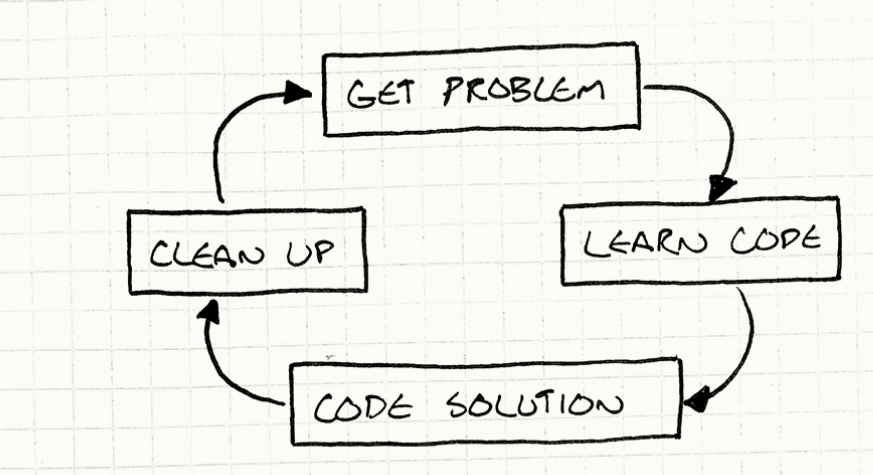 GET PROBLEM
LEARN CODE
CODE SOLUTION
CLEAN UP